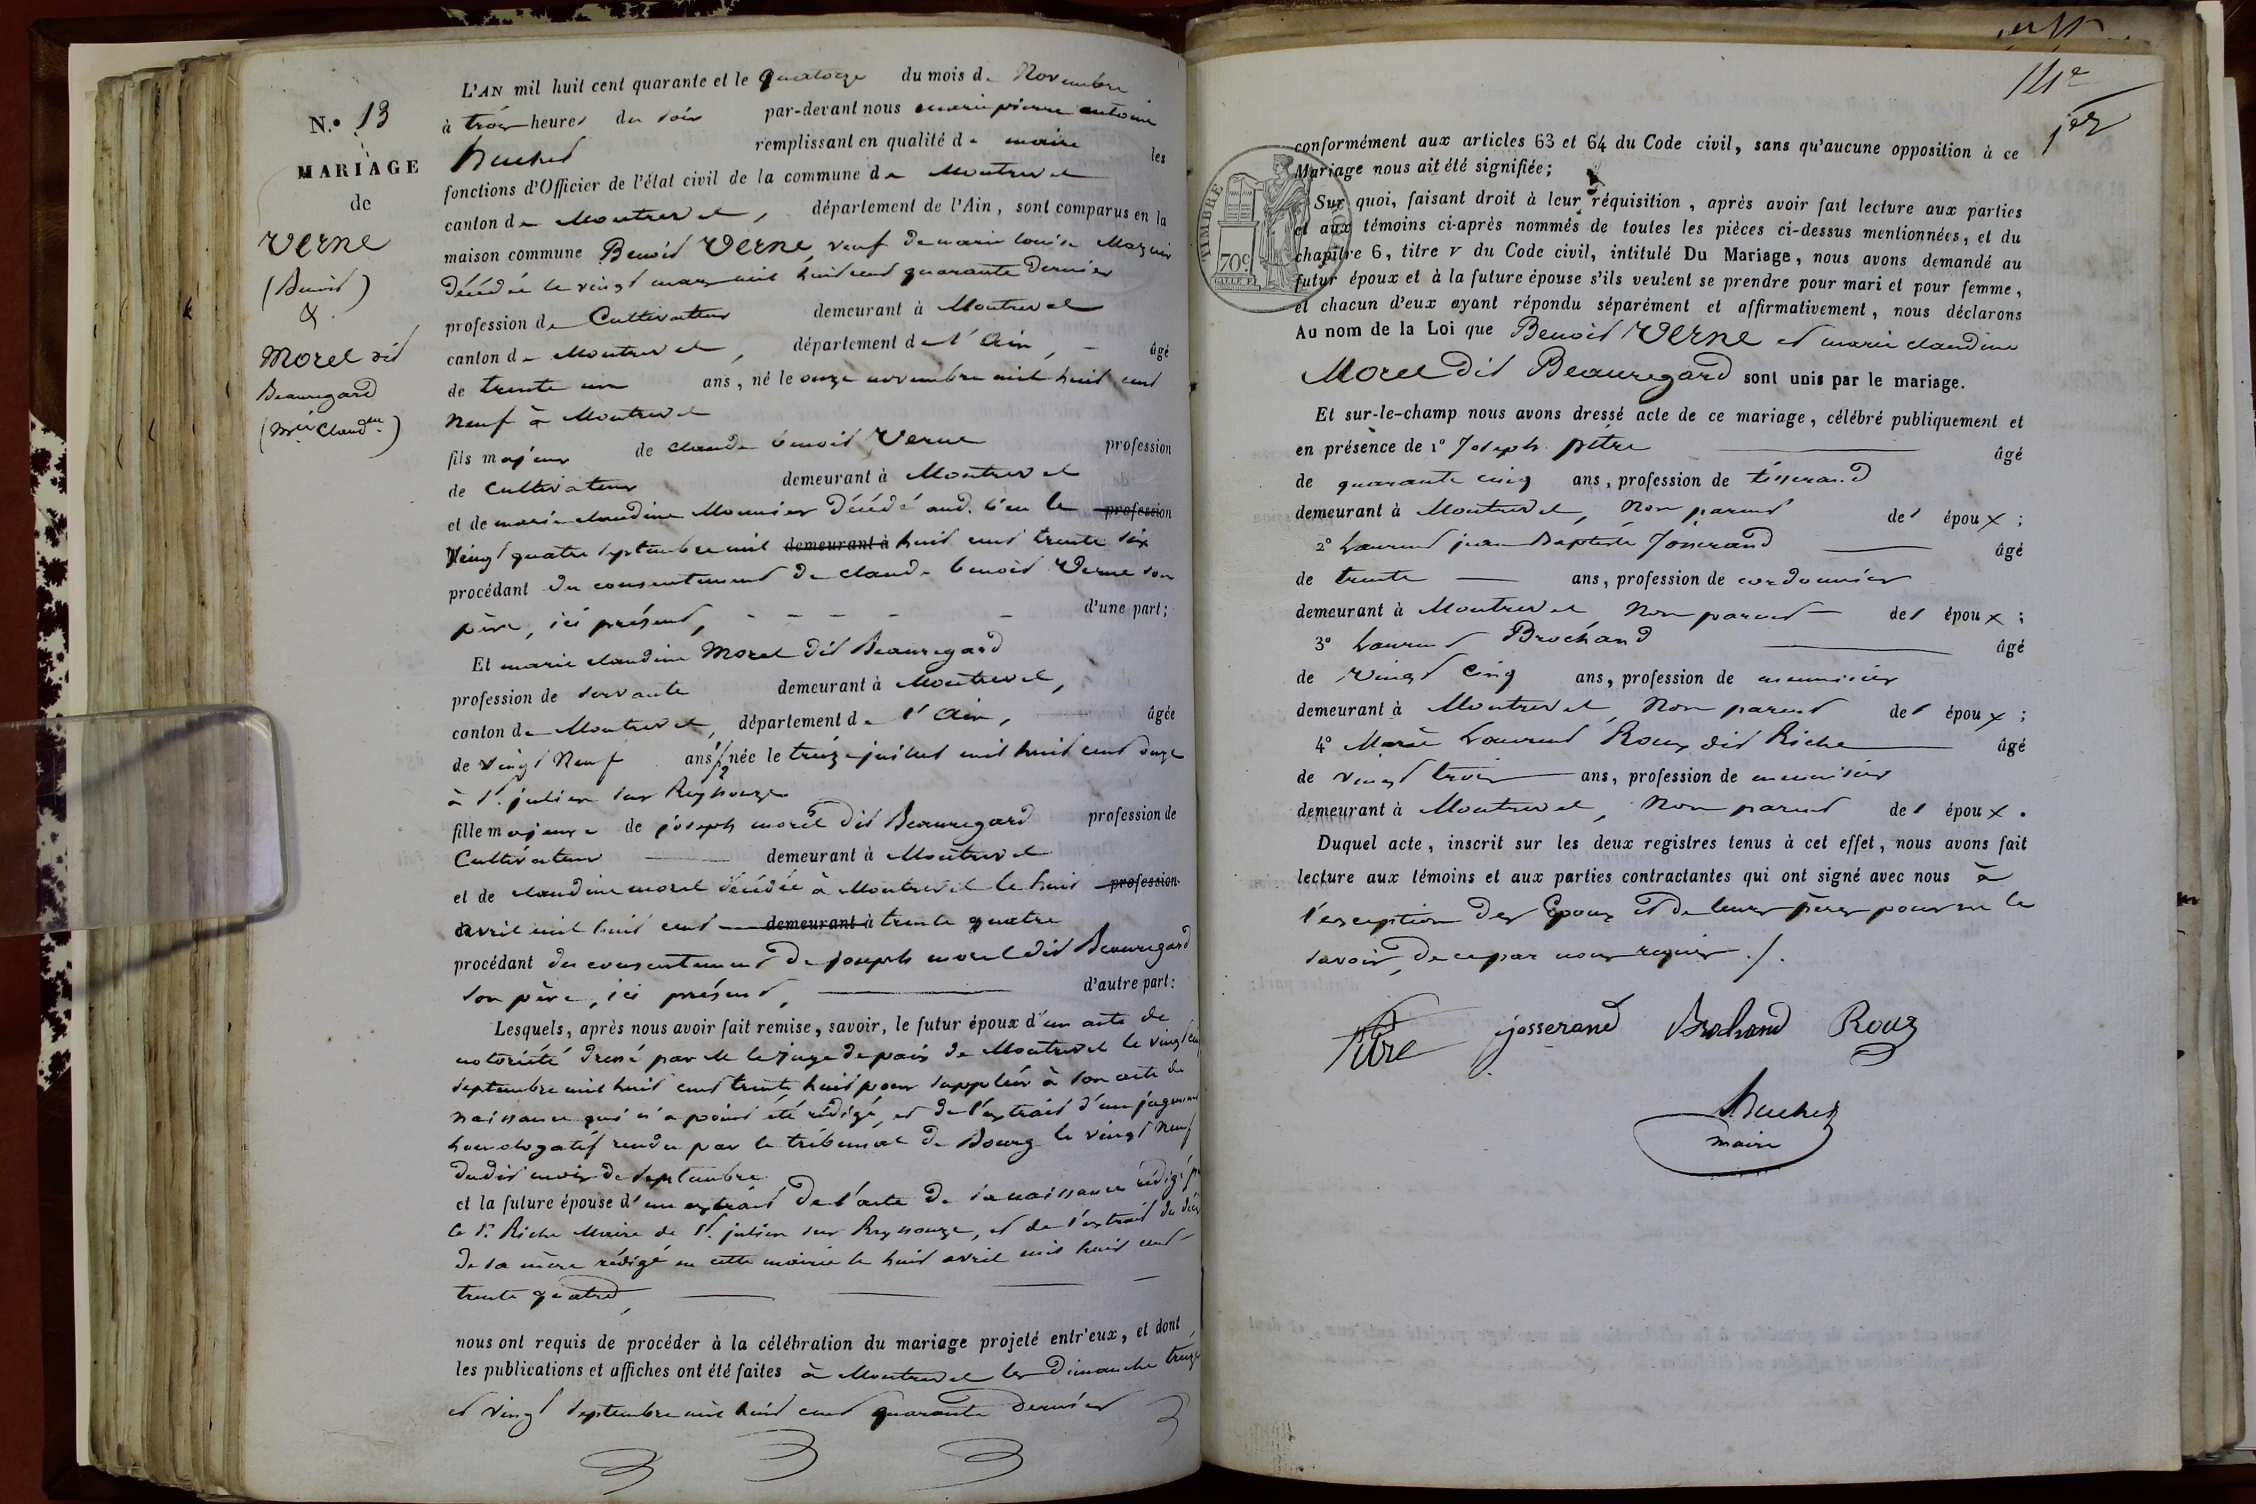 N.º 13
MARIAGE
de
Verne
(Benoit)
&
Morel dit
Beauregard
(Mie Claudne)
L'AN mil huit cent quarante et le quatorze du mois de Novembre
à trois heures du soir par-devant nous marie pierre antoine
remplissant en qualité de maire les
fonctions d'Officier de l'état civil de la commune de Montrevel
canton de Montrevel, département de l'Ain, sont comparus en la
maison commune Benoit Verne, veuf de marie louise
décédée le vingt mars mil huit cent quarante dernier
profession de Cultivateur demeurant à Montrevel
canton de Montrevel, département de l'Ain, âgé
de trente un ans, né le onze novembre mil huit cent
neuf à Montrevel
fils majeur de claude benoit Verne profession
de cultivateur demeurant à Montrevel
et de marie claudine Mounier décédé aud. lieu le profession
Vingt quatre septembre mil demeurant à huit cent trente six
procédant du consentement de claude benoit Verne son
père, ici présent, d'une part;
Et marie claudine Morel dit Beauregard
profession de servante demeurant à Montrevel,
canton de Montrevel, département de l'Ain, âgée
de vingt neuf ans 1/2 née le treize juillet mil huit cent onze
à St. julien sur Reyssouze
fille majeure de joseph morel dit Beauregard profession de
Cultivateur demeurant à Montrevel
et de claudine morel décédée à Montrevel le huit profession
avril mil huit cent demeurant à trente quatre
procédant du consentement de joseph morel dit Beauregard
son père, ici présent, d'autre part:
Lesquels, après nous avoir fait remise, savoir, le futur époux d'un acte de
notoriété dressé par M le juge de paix de Montrevel le vingt
septembre mil huit cent trente huit pour suppléer à son acte de
naissance qui n'a point été rédigé, et de l'extrait d'un jugement
homologatif rendu par le tribunal de Bourg le vingt neuf
dudit mois de septembre
et la future épouse d'un extrait de l'acte de sa naissance rédigé par
le Sr. Riche Maire de St. julien sur Reyssouze, et de l'extrait du décès
de sa mère rédigé en cette mairie le huit avril mil huit cent
trente quatre,
nous ont requis de procéder à la célébration du mariage projeté entr'eux, et dont
les publications et affiches ont été faites à Montrevel les Dimanche treize
et vingt septembre mil huit cent quarante dernier
14e
conformément aux articles 63 et 64 du Code civil, sans qu'aucune opposition à ce
Mariage nous ait été signifiée;
Sur quoi, faisant droit à leur réquisition, après avoir fait lecture aux parties
et aux témoins ci-après nommés de toutes les pièces ci-dessus mentionnées, et du
chapitre 6, titre v du Code civil, intitulé Du Mariage, nous avons demandé au
futur époux et à la future épouse s'ils veulent se prendre pour mari et pour femme,
et chacun d'eux ayant répondu séparément et affirmativement, nous déclarons
Au nom de la Loi que Benoit Verne et marie claudine
Morel dit Beauregard sont unis par le mariage.
Et sur-le-champ nous avons dressé acte de ce mariage, célébré publiquement et
en présence de 1º Joseph pitre âgé
de quarante cinq ans, profession de tisserand
demeurant à Montrevel, Non parent des époux;
2º Laurent jean Baptiste Josserand âgé
de trente ans, profession de cordonnier
demeurant à Montrevel Non parent des époux;
3º Laurent Brochand âgé
de Vingt cinq ans, profession de menuisier
demeurant à Montrevel, Non parent des époux;
4º Marie Laurent Roux dit Riche âgé
de vingt trois ans, profession de menuisier
demeurant à Montrevel, Non parent des époux.
Duquel acte, inscrit sur les deux registres tenus à cet effet, nous avons fait
lecture aux témoins et aux parties contractantes qui ont signé avec nous à
l'exception des Epoux et de leurs pères pour ne le
savoir, de ce par nous requis ./.
TIMBRE
70c
Pitre josserand Brochand Roux
maire